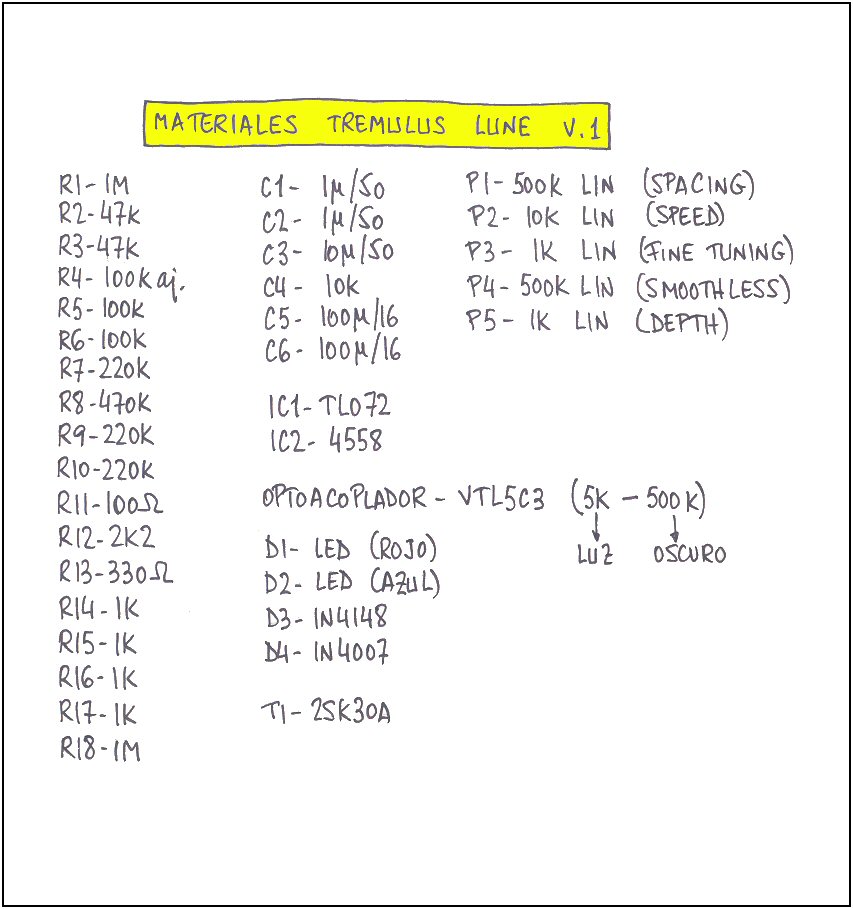 MATERIALES TREMULUS LUNE V.1
R1-1M
R2-47K
R3-47K
R4-100K aj.
R5-100K
R6-100K
R7-220K
R8-470K
R9-220K
R10-220K
R11-100Ω
R12-2K2
R13-330Ω
R14-1K
R15-1K
R16-1K
R17-1K
R18-1M
C1- 1µ/50
C2- 1µ/50
C3- 10µ/50
C4- 10K
C5- 100µ/16
C6- 100µ/16
IC1-TL072
IC2- 4558
OPTOACOPLADOR - VTL5C3 (5K - 500K)
LUZ OSCURO
D1- LED (ROJO)
D2- LED (AZUL)
D3- 1N4148
D4- 1N4007
T1- 2SK30A
P1- 500K LIN (SPACING)
P2- 10K LIN (SPEED)
P3- 1K LIN (FINE TUNING)
P4- 500K LIN (SMOOTHLESS)
P5- 1K LIN (DEPTH)